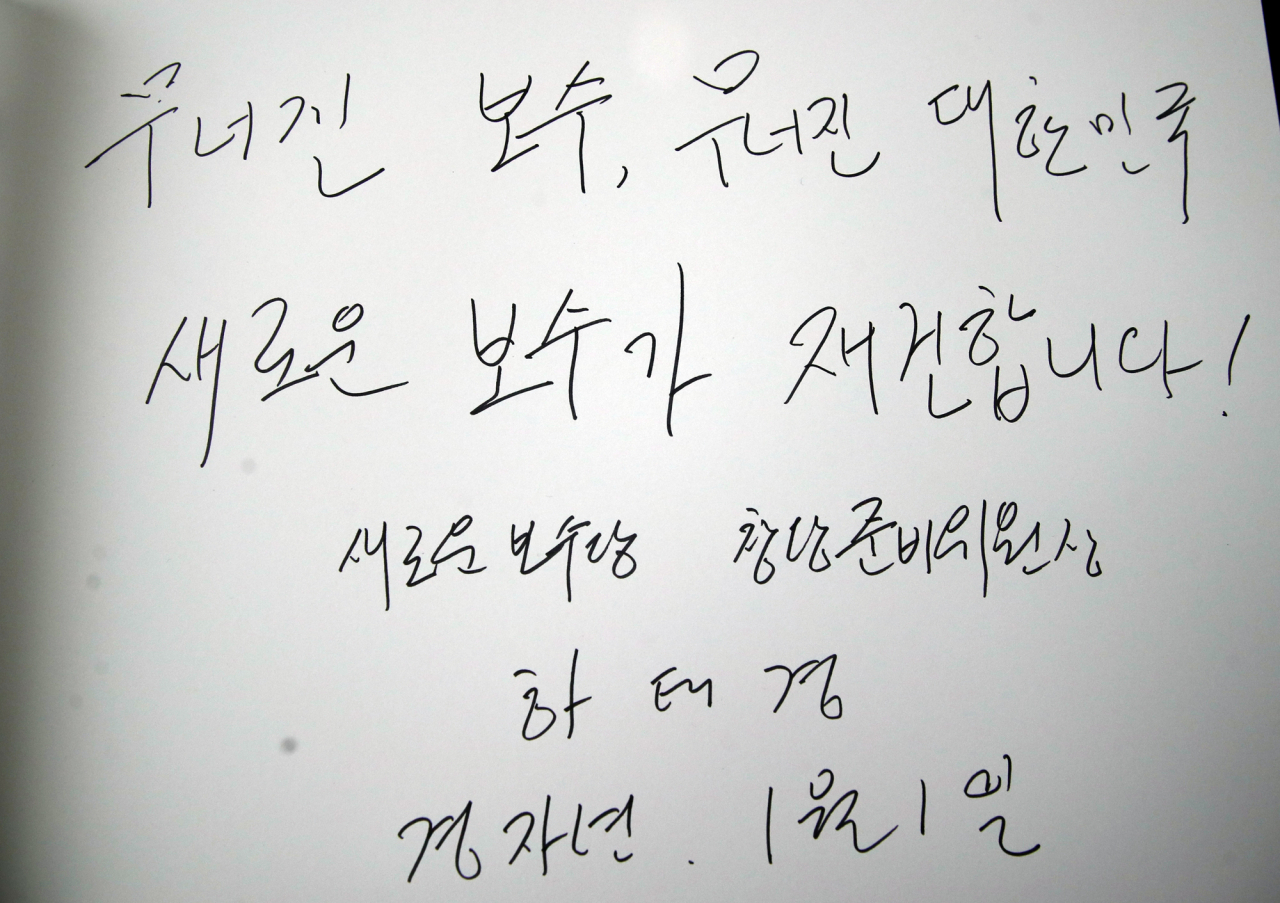 무너진 보수, 무너진 대한민국
새로운 보수가 재건합니다!
새로운보수당 창당준비위원장
하태경
경자년. 1월 1일